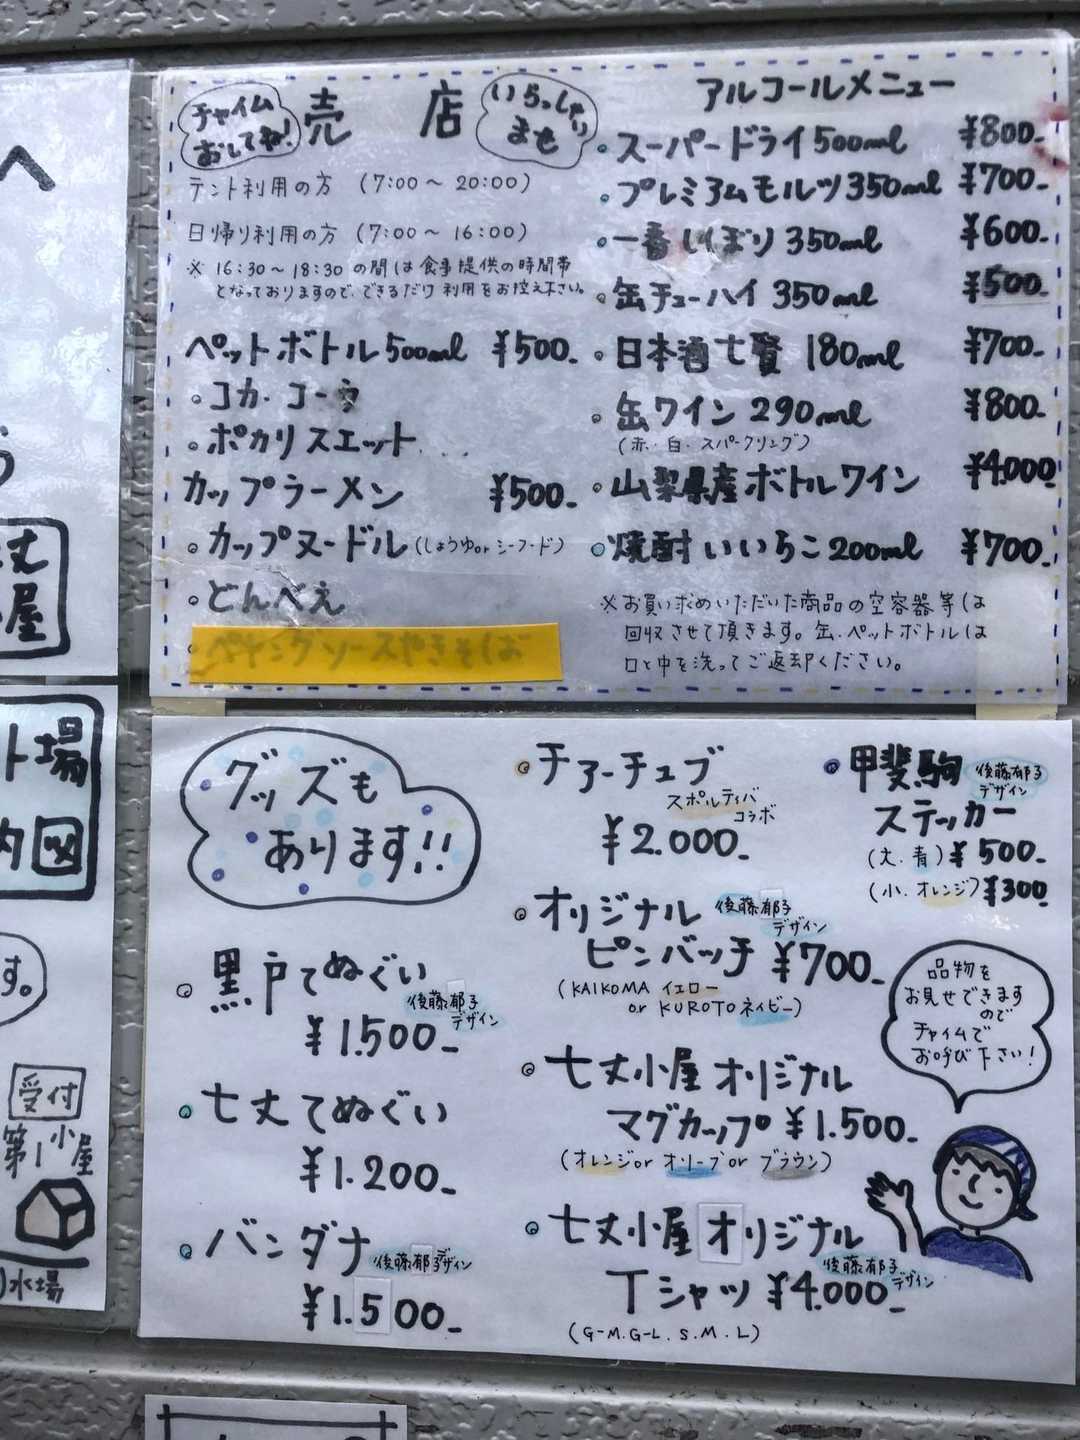 チャイム
おしてね!
売 店
いらっしゃい
ませ
テント利用の方 (7:00~20:00)
日帰り利用の方 (7:00~16:00)
※ 16:30~18:30 の間は食事提供の時間帯
となっておりますので、できるだけ利用をお控え下さい。
ペットボトル500ml ¥500-
・コカ・コーラ
・ポカリスエット....
カップラーメン ¥500-
・カップヌードル(しょうゆorシーフード)
・どんべえ
・ペヤングソースやきそば
アルコールメニュー
・スーパードライ500ml ¥800-
・プレミアムモルツ350ml ¥700-
・一番しぼり350ml ¥600-
・缶チューハイ350ml ¥500-
・日本酒七賢 180ml ¥700-
・缶ワイン290ml ¥800-
(赤・白・スパークリング)
・山梨県産ボトルワイン ¥4.000
・焼酎いいちこ200ml ¥700-
※お買い求めいただいた商品の空容器等は
回収させて頂きます。缶・ペットボトルは
口と中を洗ってご返却ください。
グッズも
あります!!
・黒戸てぬぐい
後藤郁子
デザイン
¥1.500-
・七丈てぬぐい
¥1.200-
・バンダナ 後藤郁子デザイン
¥1.500-
・チアーチュブ
スポルティバ
コラボ
¥2.000-
・オリジナル 後藤郁子
デザイン
ピンバッチ ¥700-
(KAIKOMA イエロー
or KUROTOネイビー)
・七丈小屋 オリジナル
マグカップ ¥1.500-
(オレンジor オリーブor ブラウン)
・七丈小屋 オリジナル
後藤郁子
デザイン
Tシャツ ¥4.000-
(G-M.G-L.S.M.L)
・甲斐駒 後藤郁子
デザイン
ステッカー
(大.青)¥500-
(小.オレンジ)¥300
品物を
お見せできます
ので
チャイムで
お呼び下さい!
へ
丈
屋
ト場
内図
す。
受付
第1小屋
水場